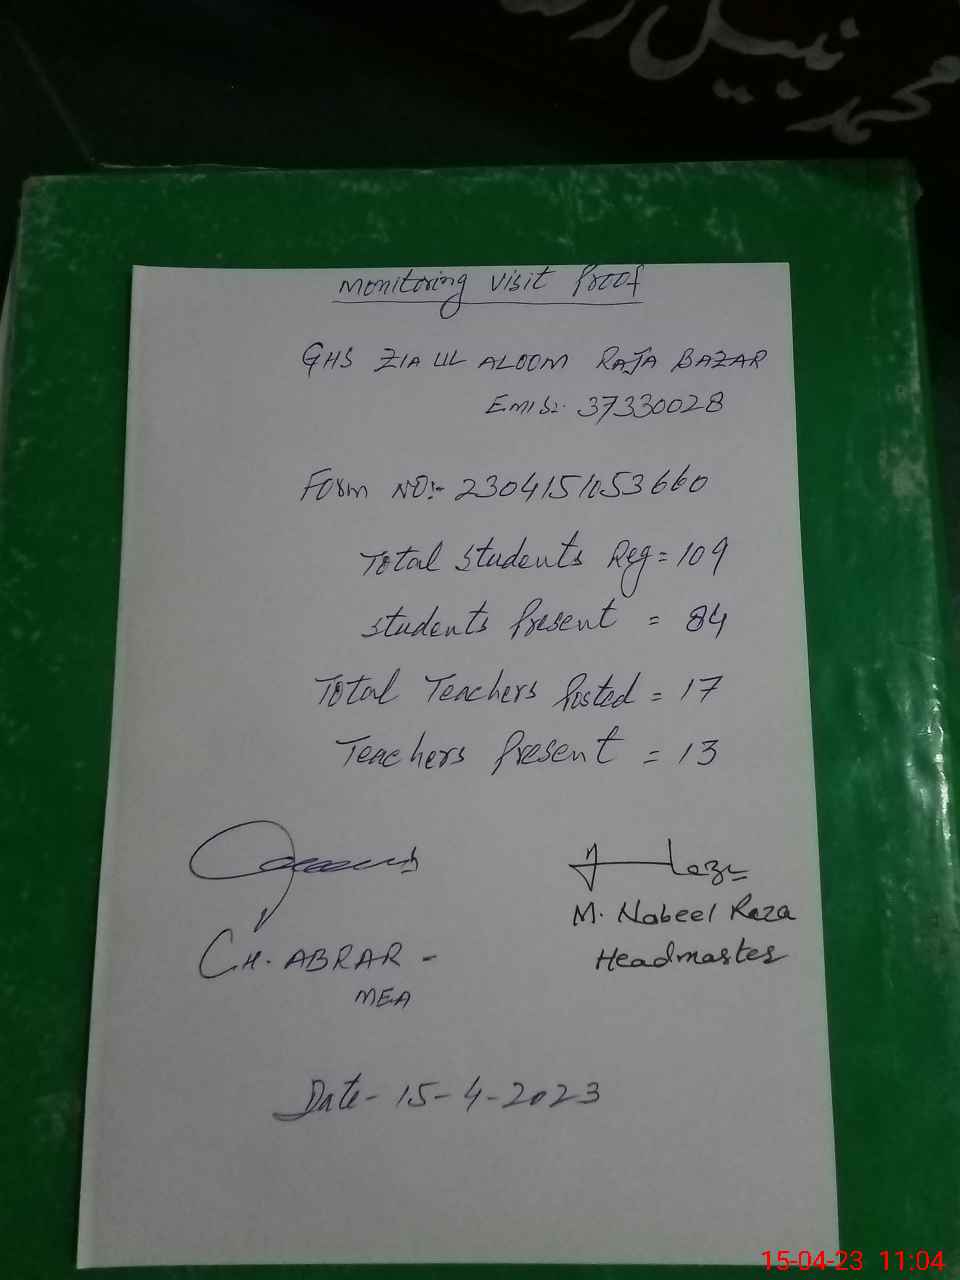 محمد نبیل رضا
Monitoring Visit Proof
GHS ZIA UL ALOOM RAJA BAZAR
Emis:- 37330028
Form NO:- 2304151053660
Total Students Reg = 109
Students Present = 84
Total Teachers Posted = 17
Teachers Present = 13
CH. ABRAR -
MEA
M. Nabeel Raza
Headmaster
Date - 15-4-2023
15-04-23 11:04